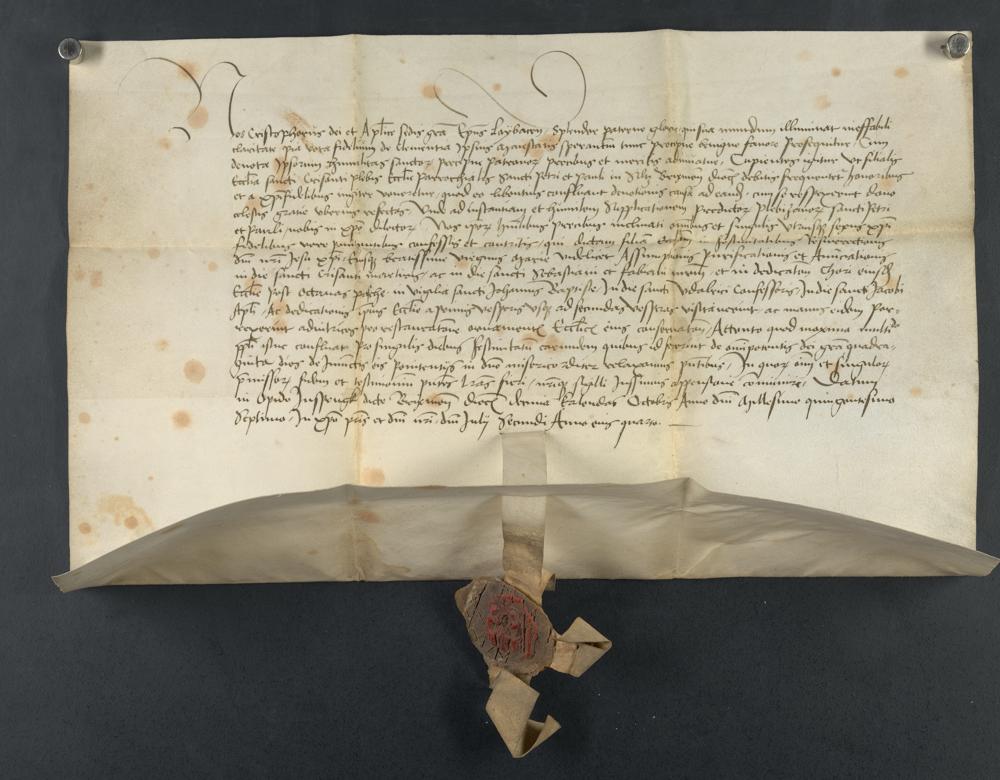 Nos Cristophorus dei et Aplice sedis gra Epus Laybacen, Splendor paterne glorie qui sua mundum illuminat ineffabili
claritate pia vota fidelium de clementia ipsius maiestatis sperantium tunc precipue benigno favore prosequitur Cum
devota ipsorum humilitas sanctor precipue patronor precibus et meritis adiuvatur. Cupientes igitur ut filialis
Ecclia sancti Crisanti plebis Ecclie parrochialis Sancti Petri et pauli in Brixinen dioc debitis frequentetur honoribus
et a xpifidelibus iugiter veneretur, quod eo libentius confluant devotionis causa ad eand, dono
celestis gratie uberius refectos. Unde ad instantiam et humilem Supplicationem predictor plebisanor sancti Petri
et Pauli nobis in xpo dilector Nos ipor humilibus precibus inclinati omnibus et singulis utriusq sexus xpi
fidelibus vere penitentibus confessis et contritis, qui dictam filiam eccliam in festivitatibus Resurrectionis
dni nri Jesu xpi eiusq beatissime virginis Marie videlicet Assumptionis Purificationis et Anunciationis
in die sancti Crisanti martiris, ac in die sancti Sebastiani et fabiani mrum, et in dedicaton Chori eiusd
Ecclie post octavas pasche. in vigilia sancti Johannis Baptiste. In die sancti Udalrici Confessoris, In die sancti Jacobi
Apli, Ac dedicationis ipius Ecclie a primis vesperis usq ad secundas vesperas visitaverint ac manus eidem por-
rexerint adiutrices pro restauratione ornamentor Ecclie eius conservaton, Attento quod maxima multitudo
ppli istuc confluat Pro singulis diebus festivitatum earundem quibus id fecerint de omipotentis dei gra quadra-
ginta dies de iniunctis eis penitentijs in dno misericorditer relaxamus pntibus, In quor oim et singulor
pmissor fidem et testimonium pntes lras fieri, nriq sigilli iussimus appensione comuniri. Datum
in opido Insprugk dicte Brixinen dioc decima kalendas Octobris Anno dni Millesimo quingentesimo
Septimo, In xpo pris et dni nri, dni Julij Secundi Anno eius quarto.